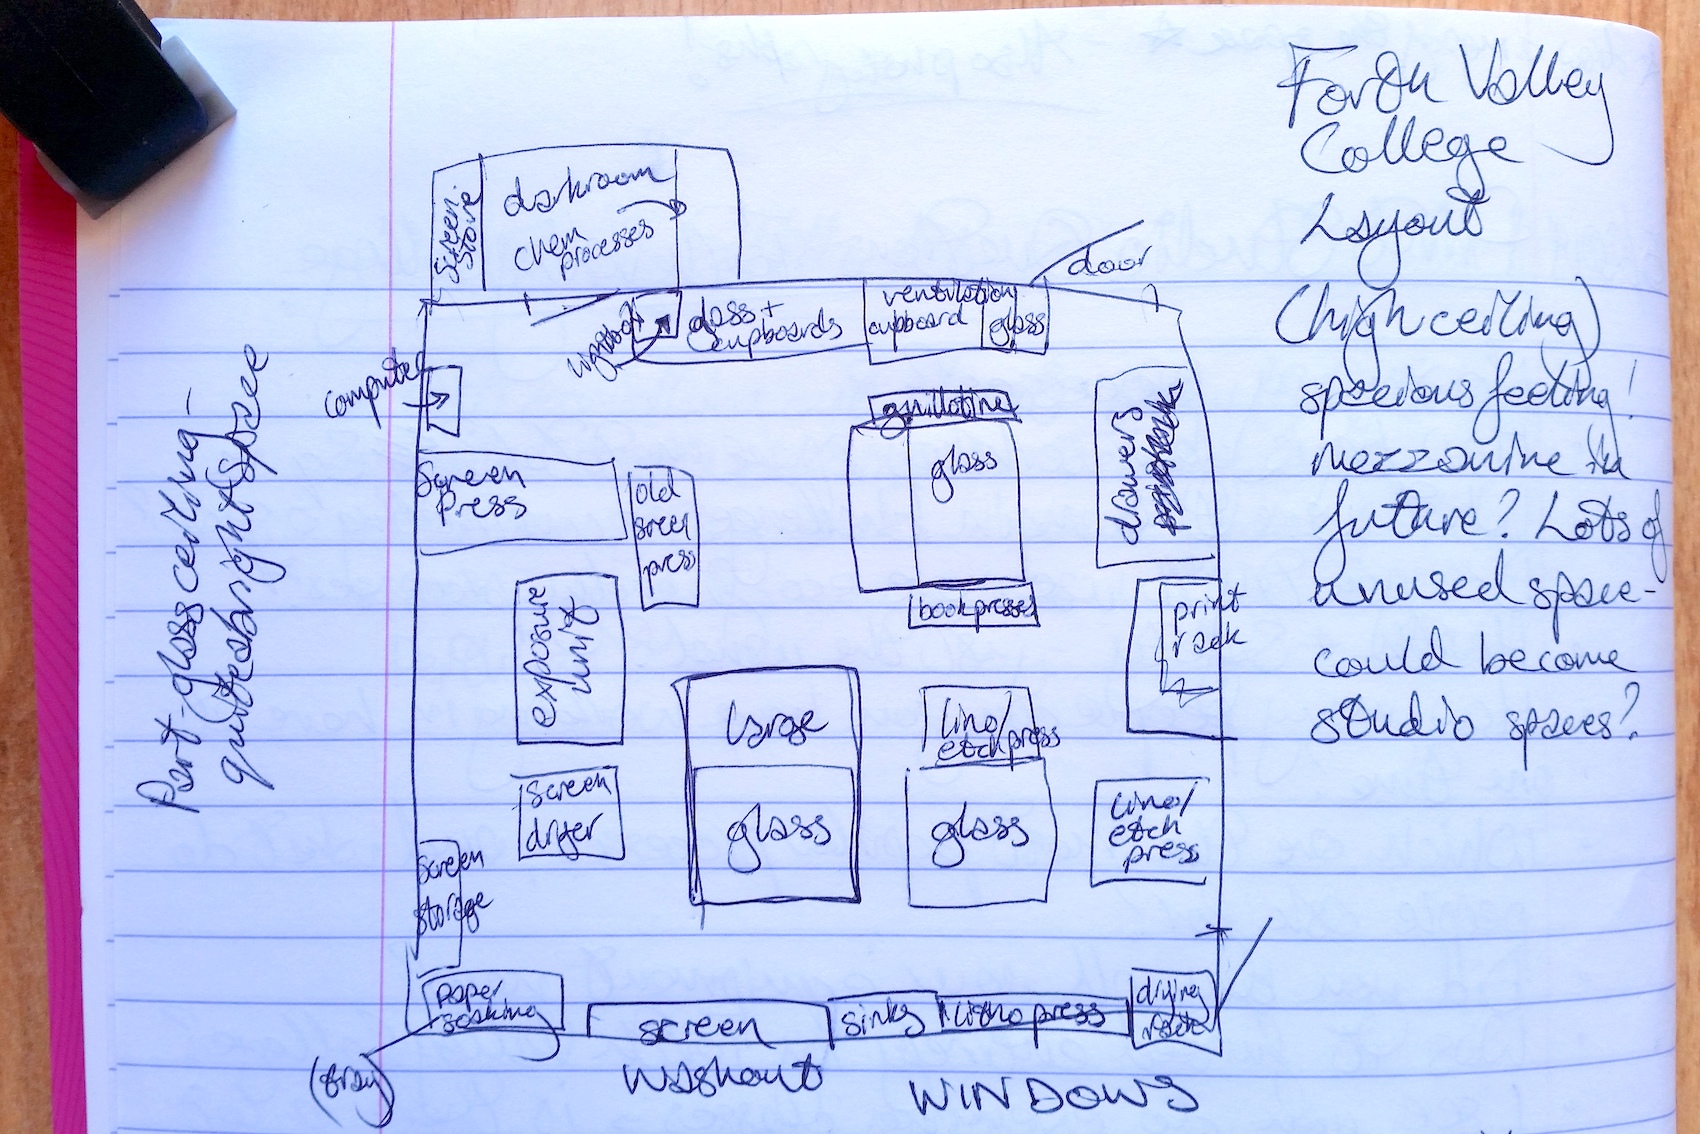 Forth Valley
College
Layout
(high ceiling)
spacious feeling!
mezzanine in
future? Lots of
unused space -
could become
studio spaces?
Part-glass ceiling -
quite a bright space
screen
store
darkroom
chem
processes
door
glass +
cupboards
ventilation
cupboard
glass
computer
guillotine
glass
drawers
Screen
Press
old
screen
press
bookpresses
print
rack
exposure
unit
large
glass
lino/
etch press
glass
screen
dryer
lino/
etch
press
screen
storage
paper
soaking
(tray)
screen
washout
sinks
litho press
drying
rack
WINDOWS